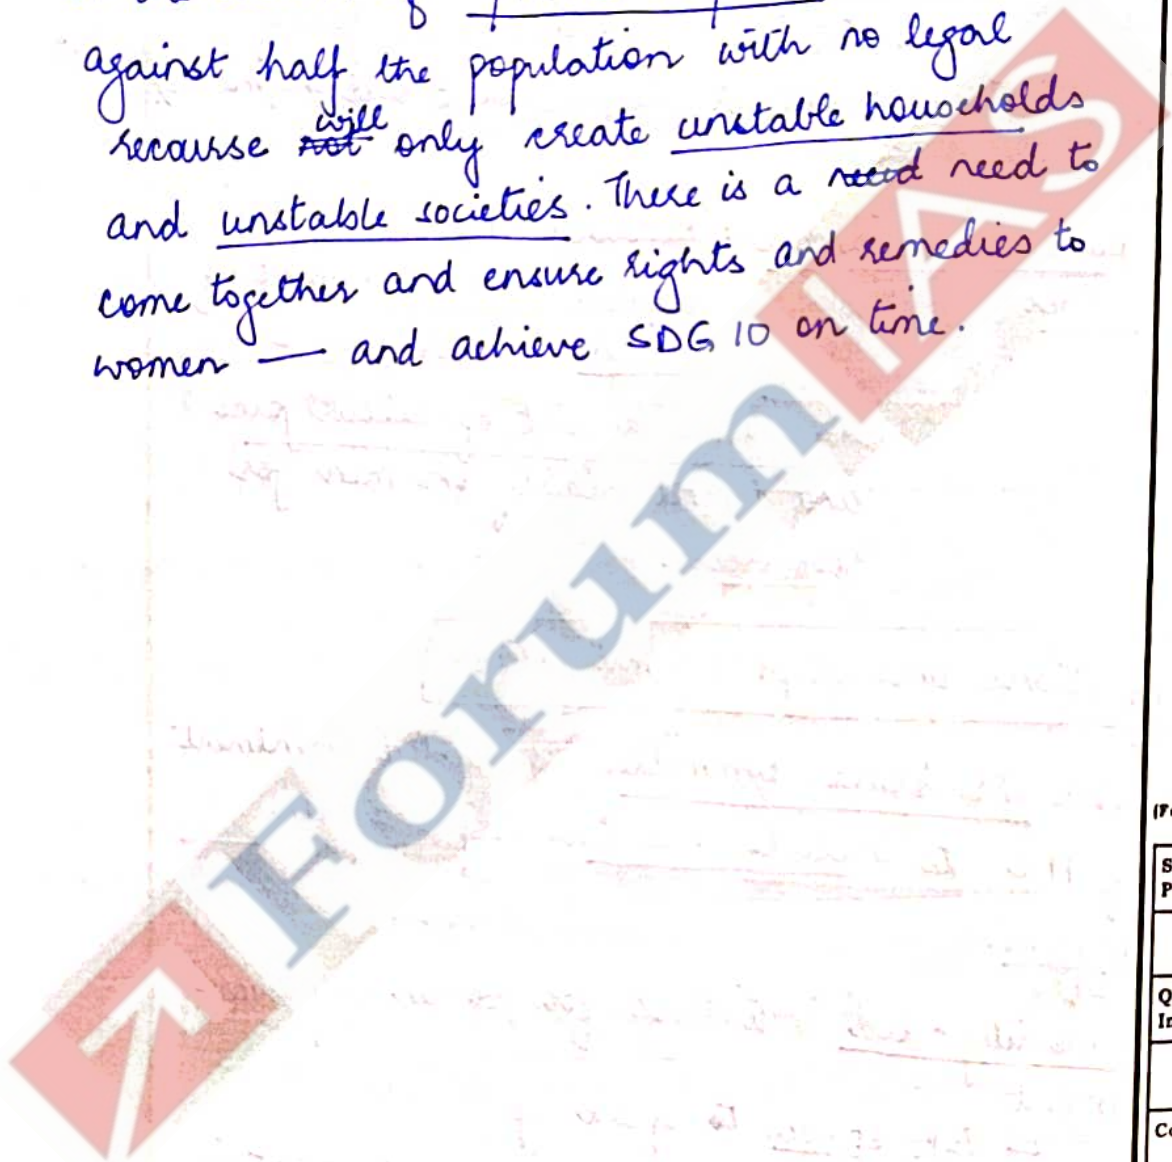 against half the population with no legal
recourse will only create unstable households
and unstable societies. There is a need need to
come together and ensure rights and remedies to
women — and achieve SDG 10 on time.
Forum IAS
S
P
Q